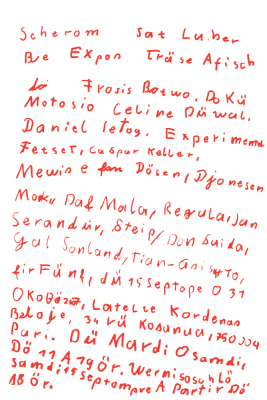 Scherom Sat Lu.ber
Be Expon Träse Afisch
Lö Frosis Botwo. Do Kü
Motosio Celine Düwal.
Daniel letog. Experimente
Fetset, Caspur Keller,
Mewis e fan Dösen, Djonesen
Moku Daf Mala, Regula, Jan
Serandür, Steip/Don Guida,
Gal Sonland, Tian-
fir Fünf, dü 15 septope 0 31
Latelle Kordenas
Beloje, 34 rü Kosanua, 750004
Pari. Dü Mardi O samdi,
Dö 11 A 19 ör. Wernisosch Lö
samdi 15 septompre A Partir Dö
18 ör.